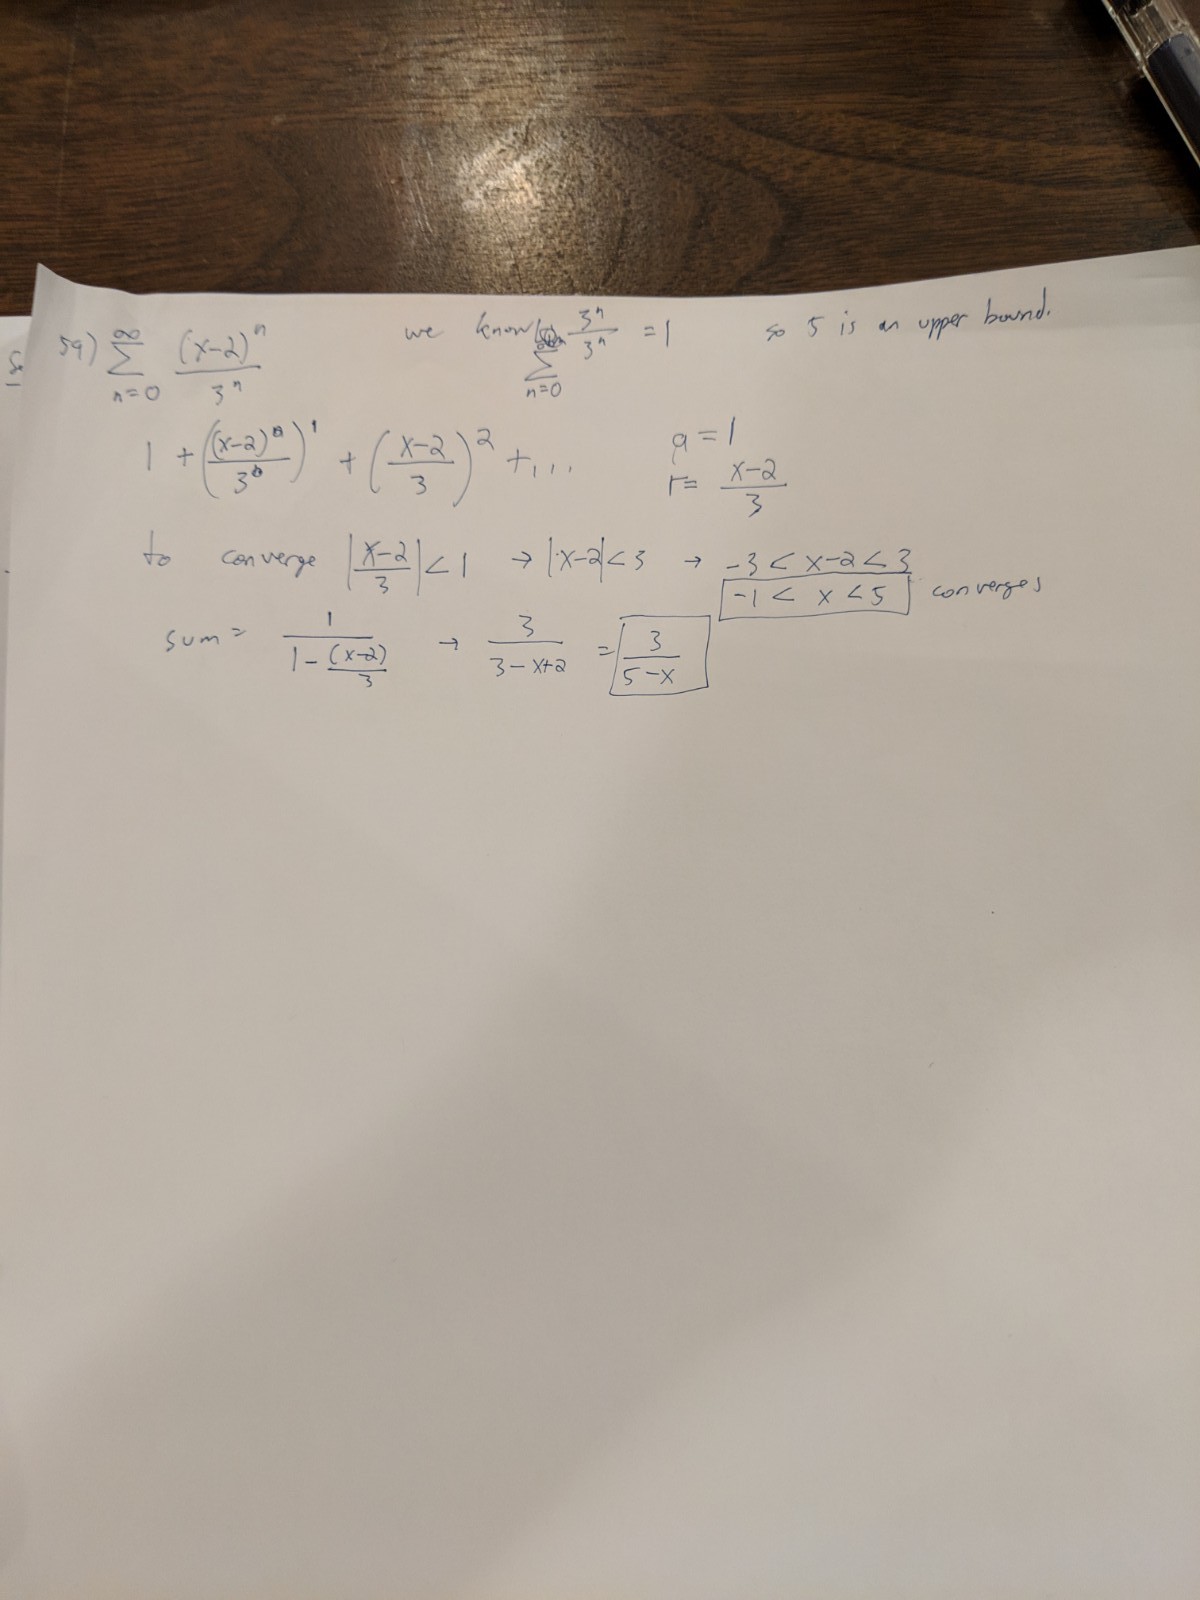 59) ∞ Σ n=0 (x-2)^n / 3^n we know Σ n=0 3^n / 3^n = 1 so 5 is an upper bound.
1 + ((x-2) / 3)^1 + (x-2 / 3)^2 + ... a = 1
r = x-2 / 3
to converge |x-2 / 3| < 1 → |x-2| < 3 → -3 < x-2 < 3
-1 < x < 5 converges
sum = 1 / 1 - (x-2) / 3 → 3 / 3-x+2 = 3 / 5-x